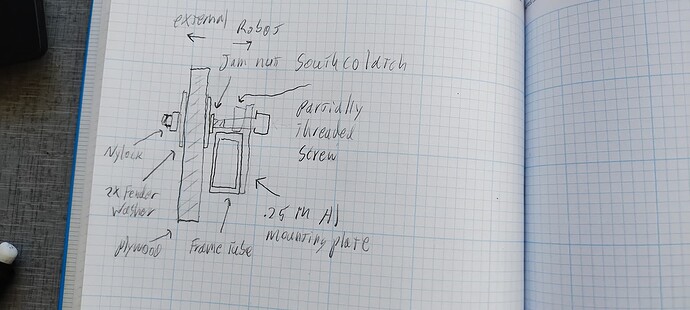 external
Robot
Jam nut
South co latch
partially
threaded
screw
Nylock
2x Fender
washer
plywood
Frame tube
.25 in Al
mounting plate